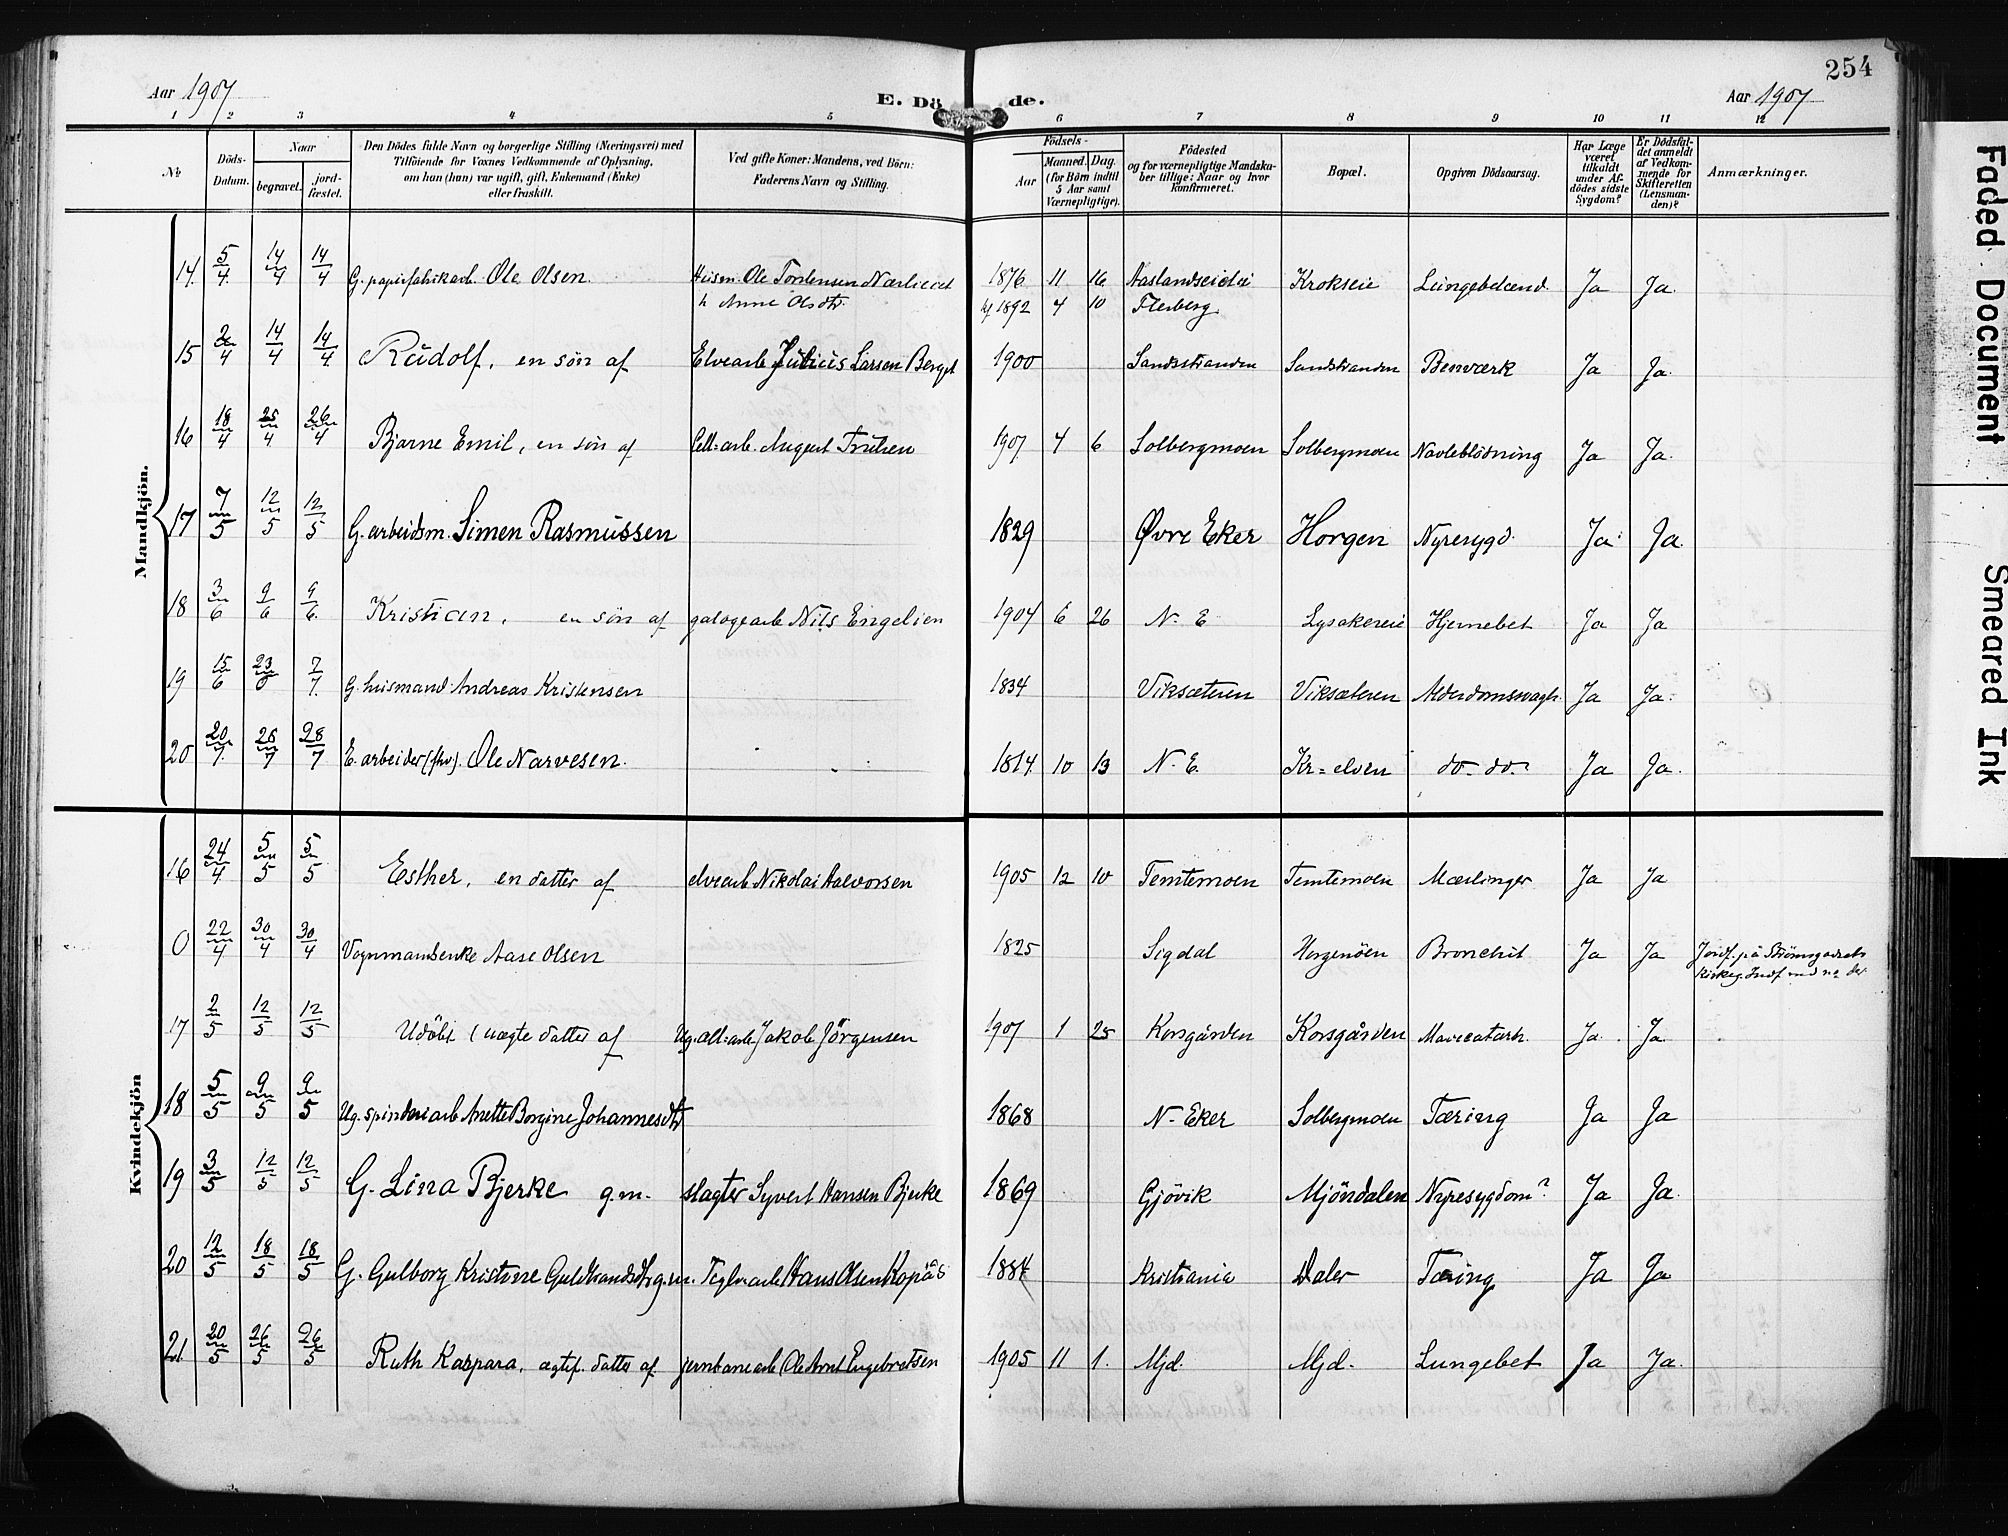 254
Aar 1907
E. Döde.
Aar 1907
1 2 3 4 5 6 7 8 9 10 11 12
No
Döds-Datum.
Naar
begravet.
jordfæstet.
Den Dödes fulde Navn og borgerlige Stilling (Næringsvei) med Tilföiende for Voxnes Vedkommende af Oplysning, om han (hun) var ugift, gift, Enkemand (Enke) eller fraskilt.
Ved gifte Koner: Mandens, ved Börn: Faderens Navn og Stilling.
Födsels-
Aar
Maaned. Dag.
(for Börn indtil 5 Aar samt Værnepligtige).
Födested og for værnepligtige Mandskaber tillige: Naar og hvor konfirmeret.
Bopæl.
Opgiven Dödsaarsag.
Har Læge været tilkaldt under Afdödes sidste Sygdom?
Er Dödsfaldet anmeldt af Vedkommende for Skifteretten (Lensmanden)?
Anmærkninger.
Mandkjön.
14. 5/4 14/4 14/4 G. papirfabrikarb. Ole Olsen. Husm. Ole Tordensen 1876 11 16 Krokseie Ja Ja.
h Anne Olsdtr. kf 1892 4 10 Flesberg
15 2/4 14/4 14/4 Rudolf, en sön af Elvearb Julius Larsen Berget 1900 Sandsstranden Sandstranden Benværk Ja Ja.
16 18/4 25/4 26/4 Bjarne Emil, en sön af Cell=arb. August Trulsen 1907 4 6 Solbergmoen Solbergmoen Navleblödning Ja Ja.
17 7/5 12/5 12/5 G. arbeidsm. Simen Rasmussen 1829 Øvre Eker Horgen Nyresygd. Ja Ja
18 3/6 9/6 9/6 Kristian, en sön af galogearb Nils Engelien 1904 6 26 N. E Lysakereie Hjernebet Ja Ja
19 15/6 23/6 7/7 G. husmand Andreas Kristensen 1834 Viksæteren Viksæteren Alderdomssvagh. Ja Ja.
20 20/7 28/7 28/7 E. arbeider (fhv). Ole Narvesen. 1814 10 13 N. E. Kr=elven do. do. Ja Ja.
Kvindekjön
16 24/4 5/5 5/5 Esther, en datter af elvearb Nikolai Halvorsen 1905 12 10 Temtemoen Temtemoen Mæslinger Ja Ja
0 22/4 30/4 30/4 Vognmandsenke Aase Olsen 1825 Sigdal Horgenöen Bronchit Ja Ja Jordf. på Strömsgodsets
17 2/5 12/5 12/5 Udöbt (uægte datter af Ug. cell=arb Jakob Jörgensen 1907 1 25 Korsgården Korsgården Mavecatarh. Ja. Ja
18 5/5 9/5 9/5 Ug. spinderiarb Anette Borgine Johannesdtr 1868 N. Eker Solbergmoen Tæring Ja Ja
19 3/5 12/5 12/5 G. Lina Bjerke g.m. slagter Syvert Hansen Bjerke 1869 Gjövik Mjöndalen Nyresygdom? Ja Ja
20 12/5 18/5 18/5 G. Gulborg Kristine Guldbrandsdtr g.m. Teglv.arb Hans Olsen Kopås 1884 Kristiania Daler Tæring Ja Ja
21 20/5 26/5 26/5 Ruth Kaspara, ægtef. datter af jernbanearb Ole Arnt Engebretsen 1905 11 1. Mjd. Mjd. Lungebet Ja Ja.
Faded Document
Smeared Ink